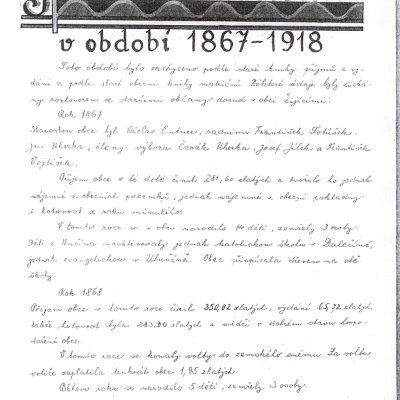 v období 1867-1918
Toto období bylo zachyceno podle staré knihy příjmů a vy-
dání a podle staré obecní knihy matriční. Některé údaje byly získá-
ny rozhovorem se staršími občany dosud v obci žijícími.
Rok 1867
Starostou obce byl Václav Entner, radními František Totůšek,
Jan Uherka, členy výboru Čeněk Uherka, Josef Jílek a František
Vojtíšek.
Příjem obce v té době činil 281,60 zlatých a tvořilo ho jednak
nájemné z obecních pozemků, jednak nájemné z obecní pokladny
i hotovost z roku minulého.
V tomto roce se v obci narodilo 14 dětí, zemřely 3 osoby.
Děti z navštěvovaly jednak katolickou školu v Dalečíně,
jednak evangelickou v Obec přispívala dřevem na obě
školy.
Rok 1868
Příjem obce v tomto roce činil 350,02 zlatých, vydání 65,72 zlatých,
takže hotovost byla 283,30 zlatých a svědčí o dobrém stavu hospo-
daření obce.
V tomto roce se konaly volby do zemského sněmu. Za volbu
voliče zaplatila tenkrát obec 1,95 zlatých.
Během roku se narodilo 5 dětí, zemřely 3 osoby.